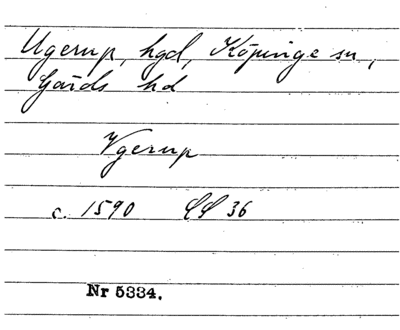 Ugerup, hgd, Köpinge sn,
Gärds hd
Vgerup
c. 1590 LL 36
Nr 5334.